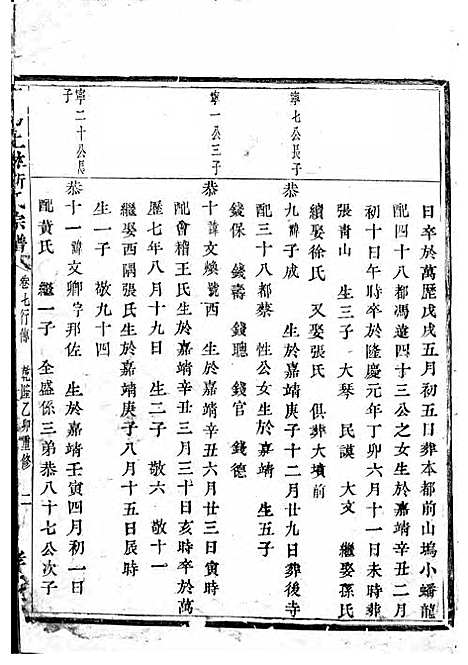 日卒於萬歷戊戌五月初五日葬本都前山塢小蟠龍
配四十八都馮邉四十三公之女生於嘉靖辛丑二月
初十日午時卒於隆慶元年丁卯六月十一日未時葬
張青山 生三子 大琴 民謨 大文 繼娶孫氏
續娶徐氏 又娶張氏 俱葬大墳前
寧七公長子
恭九諱子成 生於嘉靖庚子十二月廿九日葬後寺
配三十八都蔡 性公女生於嘉靖 生五子
錢保 錢壽 錢聰 錢官 錢德
寧一公三子
恭十諱文煥號西 生於嘉靖辛丑六月廿三日寅時
配會稽王氏生於嘉靖辛丑三月三十日亥時卒於萬
歷七年八月十九日 生二子 敬六 敬十一
繼娶西隅張氏生於嘉靖庚子八月十五日辰時
生一子 敬九十四
寧二十公長子
恭十一諱文卿字那佐 生於嘉靖壬寅四月初一日
配黃氏 繼一子 全盛係三弟恭八十七公次子
氏宗譜 卷七行傳 乾隆乙卯重修 二